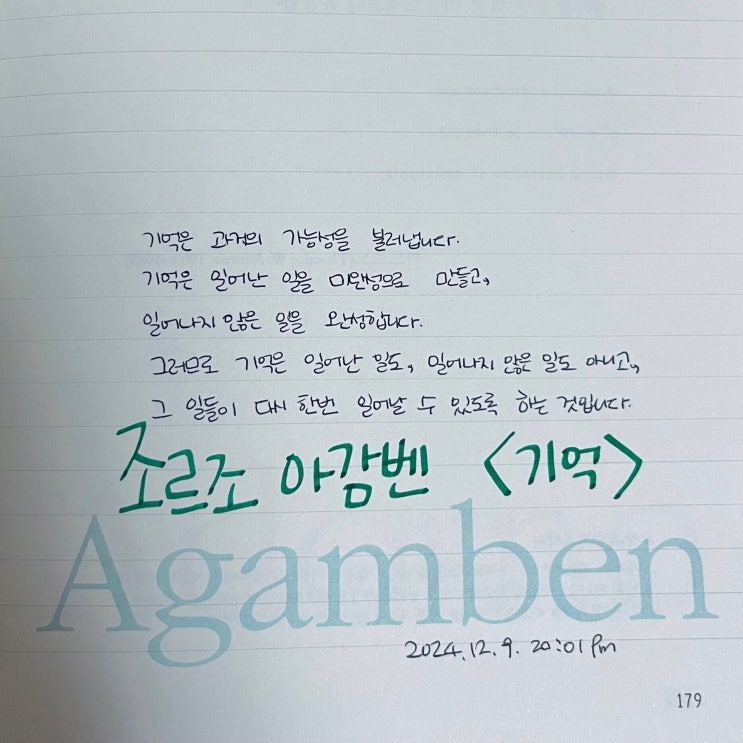 기억은 과거의 가능성을 불러냅니다.
기억은 일어난 일을 미완성으로 만들고,
일어나지 않은 일을 완성합니다.
그러므로 기억은 일어난 일도, 일어나지 않은 일도 아니고,
그 일들이 다시 한번 일어날 수 있도록 하는 것입니다.
조르조 아감벤 <기억>
Agamben
2024.12.9. 20:01 Pm
179